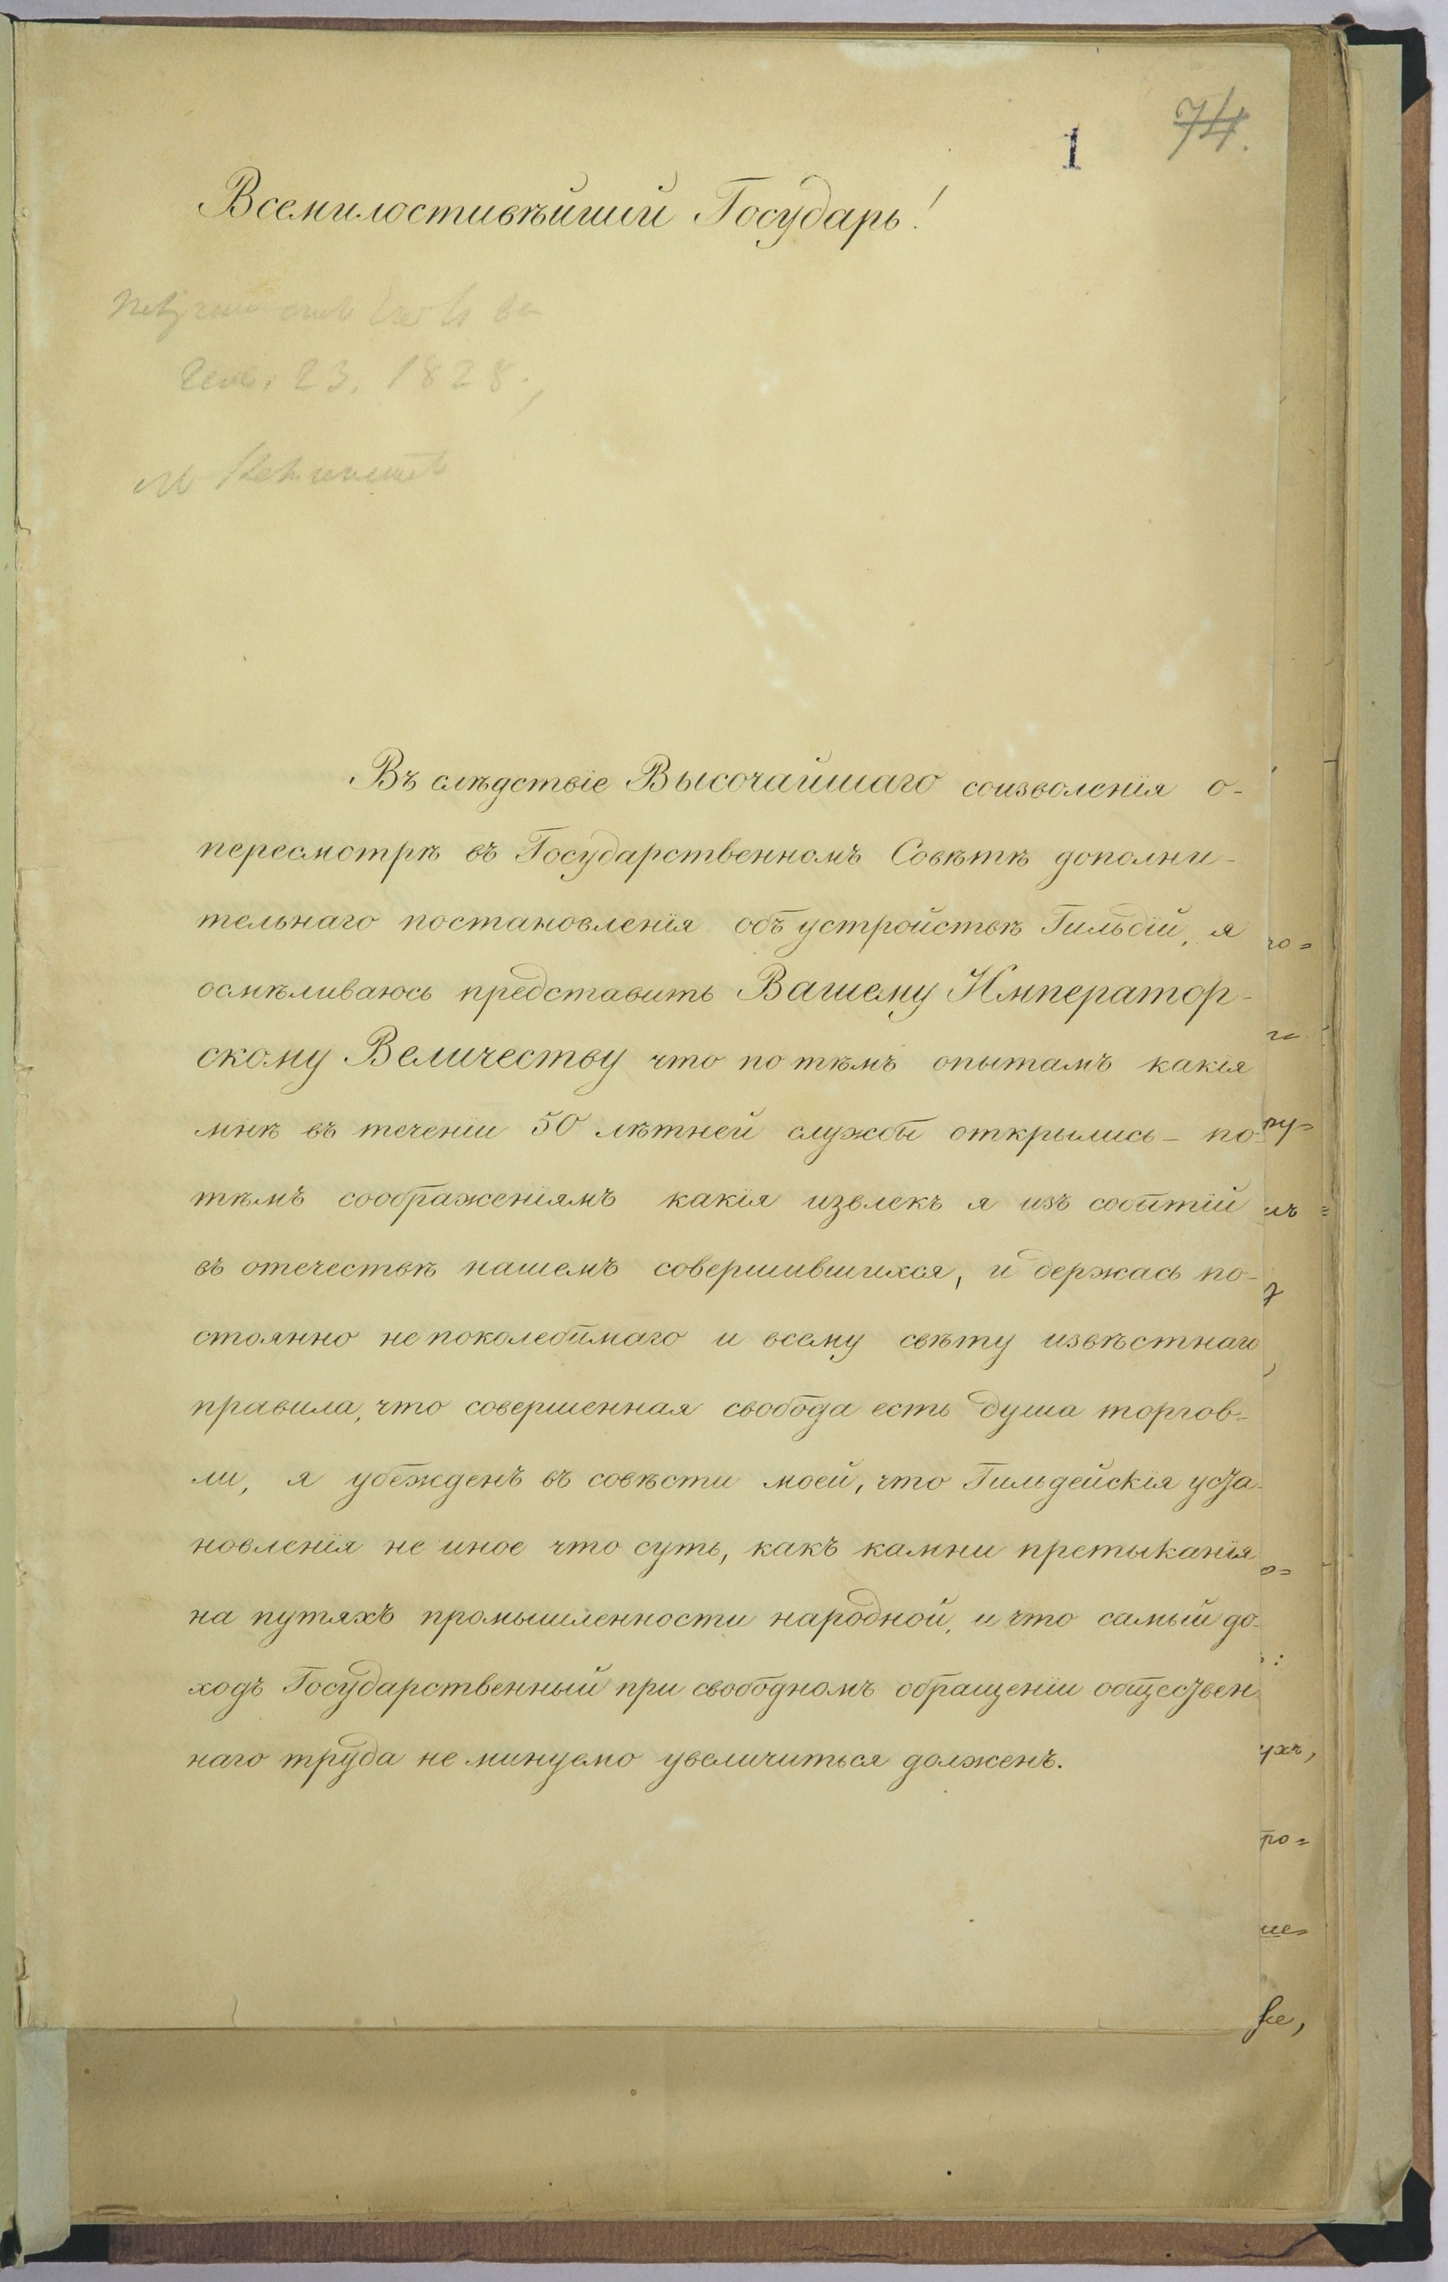 1
74.
Всемилостивѣйшій Государь!
23. 1828.
Въ слѣдствіе Высочайшаго соизволенія о-
пересмотрѣ въ Государственномъ Совѣтѣ дополни-
тельнаго постановленія объ устройствѣ Гильдій, я
осмѣливаюсь представить Вашему Император-
скому Величеству что по тѣмъ опытамъ какія
мнѣ въ теченіи 50 лѣтней службы открылись - по
тѣмъ соображеніямъ какія извлекъ я изъ событій
въ отечествѣ нашемъ совершившихся, и держась по-
стоянно не поколебимаго и всему свѣту извѣстнаго
правила, что совершенная свобода есть душа торгов-
ли, я убежденъ въ совѣсти моей, что Гильдейскія уста-
новленія не иное что суть, какъ камни претыканія
на путяхъ промышленности народной, и что самый до-
ходъ Государственный при свободномъ обращеніи обществен
наго труда не минуемо увеличиться долженъ.